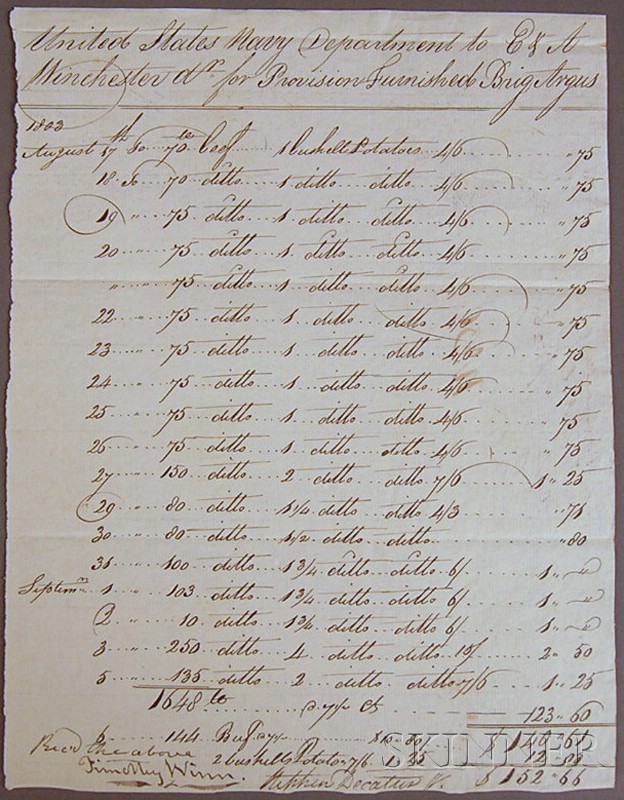 United States Navy Department to E & A
Winchester dr for Provision Furnished Brig Argus
1803
August 17th to 70 lb Beef 1 bushell Potatoes 4/6 " 75
18 to 70 ditto 1 ditto ditto 4/6 " 75
19 " 75 ditto 1 ditto ditto 4/6 " 75
20 " 75 ditto 1 ditto ditto 4/6 " 75
" " 75 ditto 1 ditto ditto 4/6 " 75
22 " 75 ditto 1 ditto ditto 4/6 " 75
23 " 75 ditto 1 ditto ditto 4/6 " 75
24 " 75 ditto 1 ditto ditto 4/6 " 75
25 " 75 ditto 1 ditto ditto 4/6 " 75
26 " 75 ditto 1 ditto ditto 4/6 " 75
27 " 150 ditto 2 ditto ditto 7/6 1 " 25
29 " 80 ditto 1 1/4 ditto ditto 4/3 " 71
30 " 80 ditto 1 1/2 ditto ditto " 80
31 " 100 ditto 1 3/4 ditto ditto 6/ 1 " "
Septemr 1 " 103 ditto 1 3/4 ditto ditto 6/ 1 " "
2 " 10 ditto 1 3/4 ditto ditto 6/ 1 " "
3 " 250 ditto 4 ditto ditto 15/ 2 " 50
5 " 135 ditto 2 ditto ditto 7/6 1 " 25
1648 lb 123 " 60
144 Beef
Recd the above 2 bushells Potatoes 7/6 1 25
Timothy Winn. Stephen Decatur Jr. $ 152 " 66
SKINNER